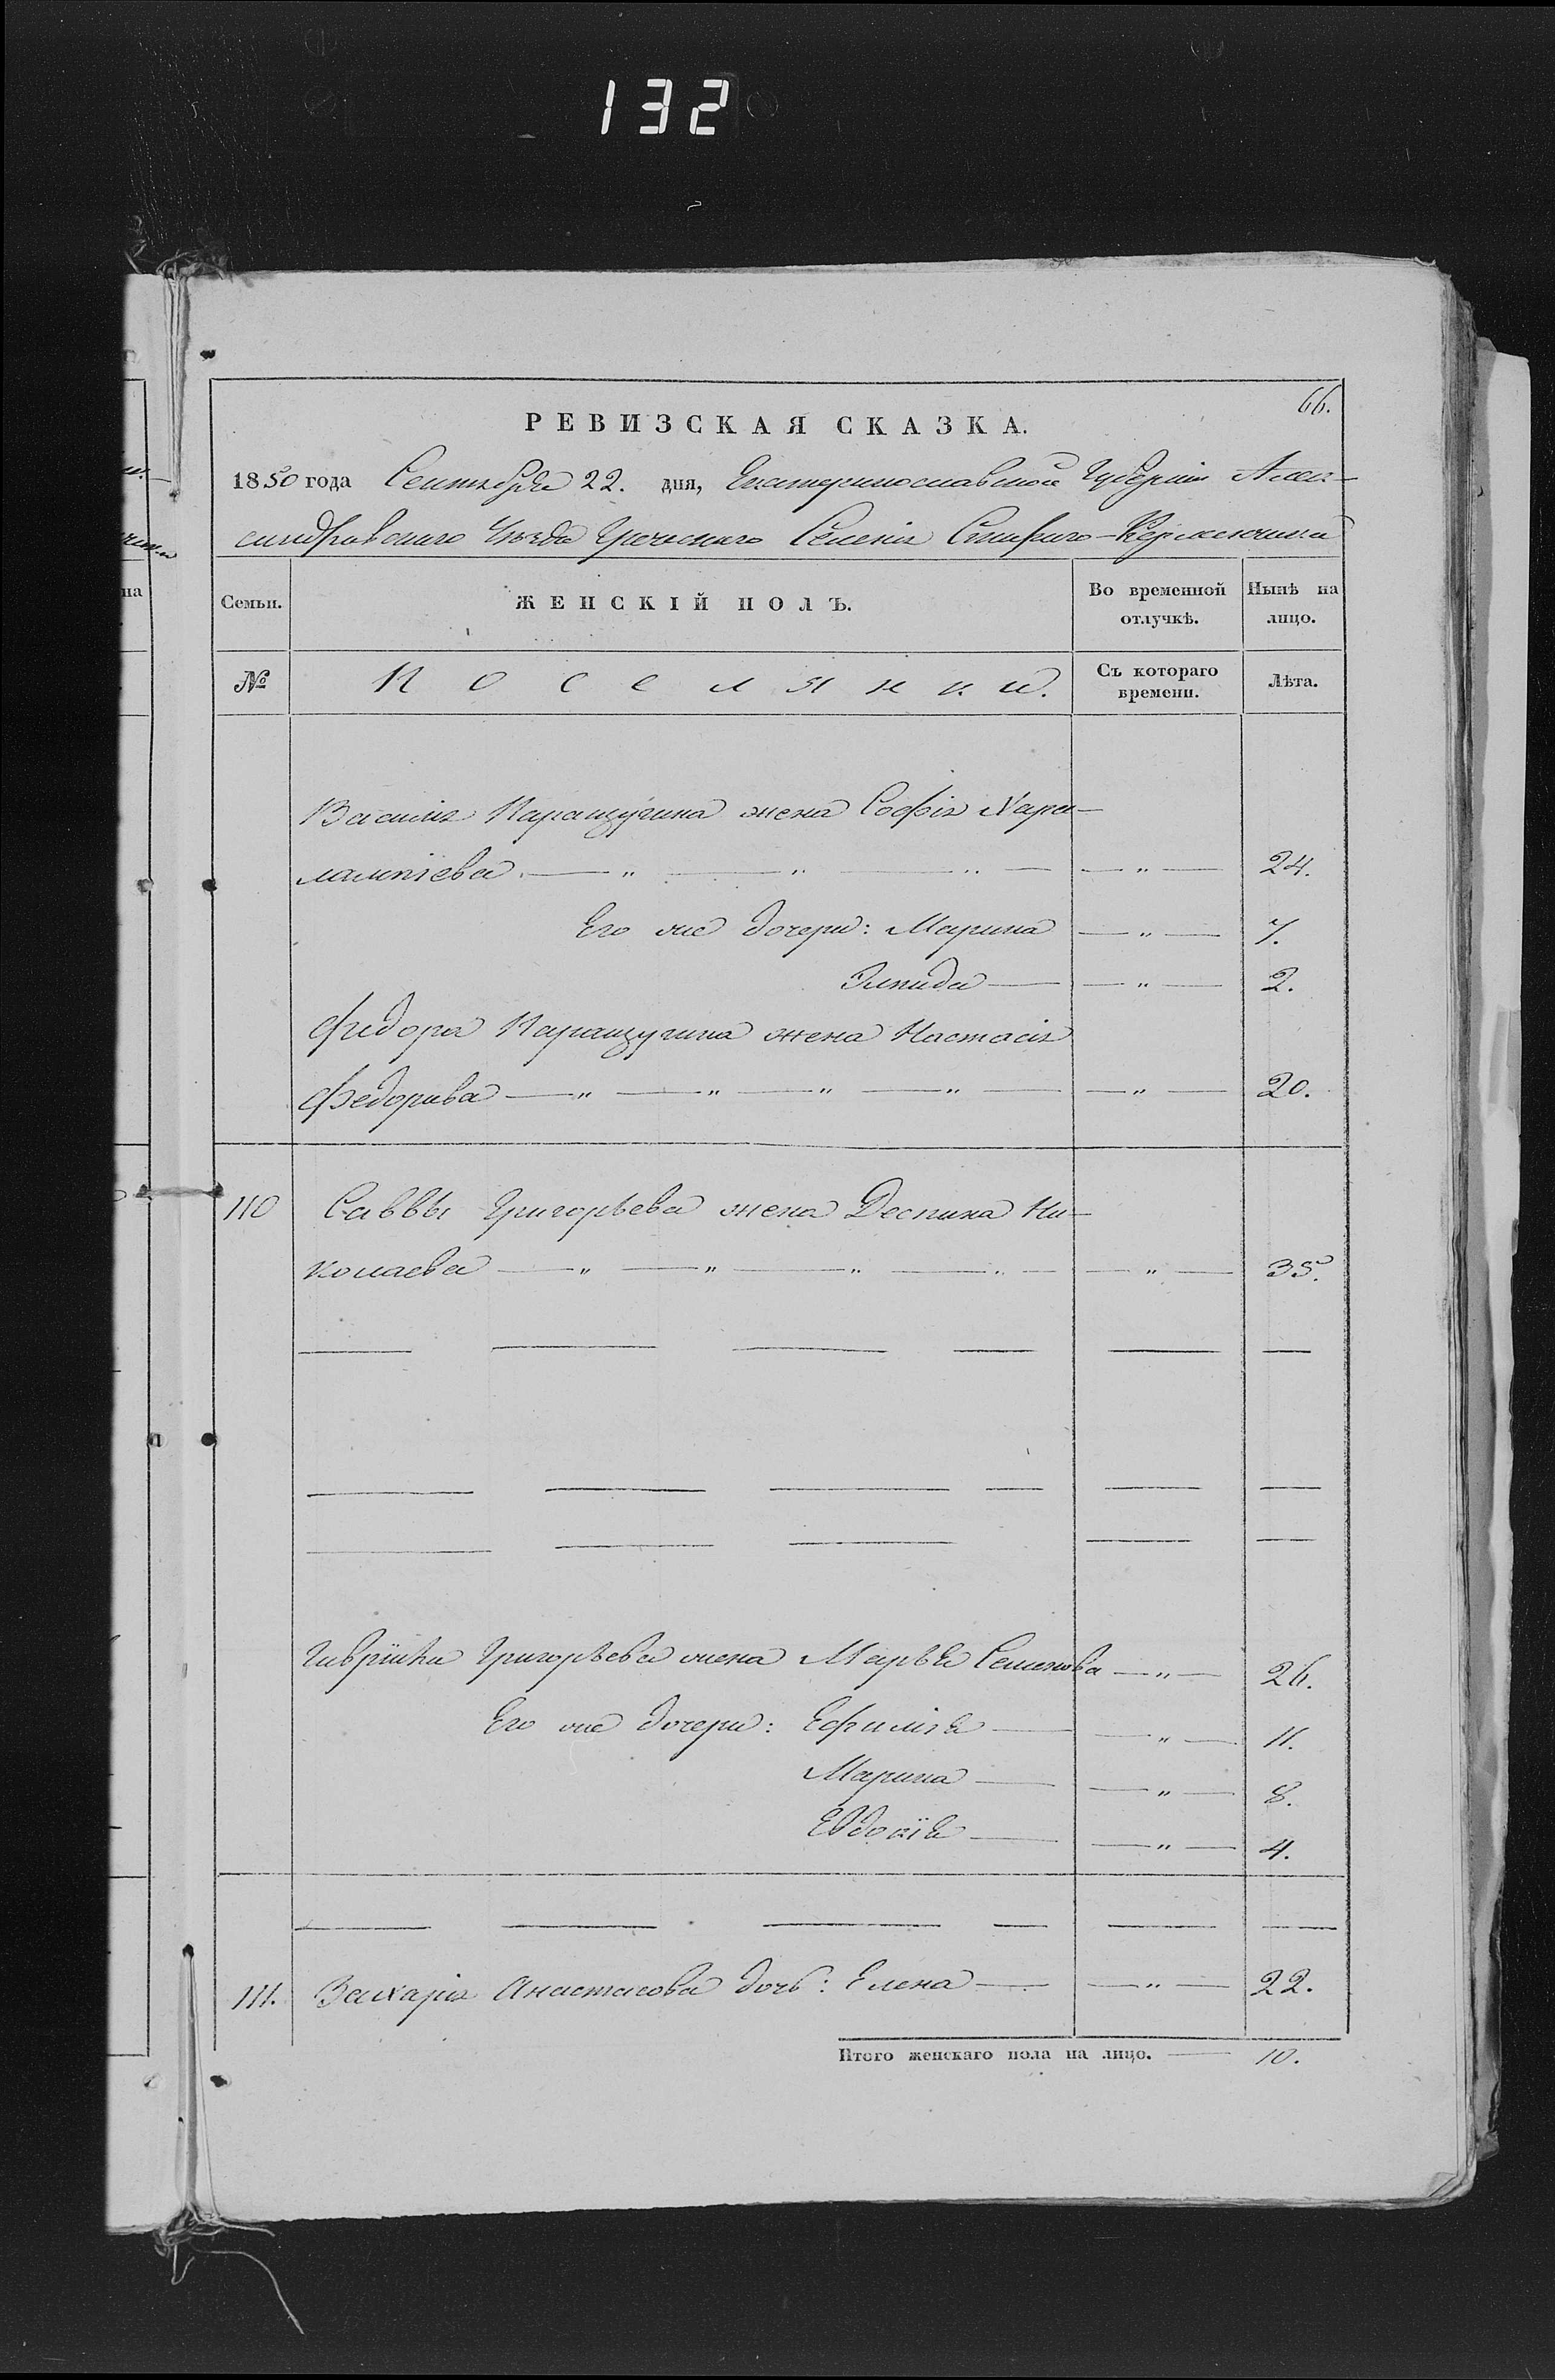 132
66.
РЕВИЗСКАЯ СКАЗКА.
1850 года Сентября 22. дня, Екатеринославской Губерніи Алек-
сандровскаго Уѣзда Греческаго Селенія Стараго-Керменчика
на
Семьи. ЖЕНСКІЙ ПОЛЪ. Во временной отлучкѣ. Нынѣ на лицо.
№ Поселянки. Съ котораго времени. Лѣта.
Василія Карацугина жена Софія Хара-
лампіева — " — " — " — — " — 24.
Его же дочери: Марина — " — 7.
Элпида — — " — 2.
Федора Карацугина жена Настасія
Федорова — " — " — " — " — — " — 20.
110 Саввы Григорьева жена Деспина Ни-
колаева — " — " — " — " — — " — 35.
Гавріила Григорьева жена Марья Семенова — " — 26.
Его же дочери: Ефимія — — " — 11.
Марина — — " — 8.
Евдокія — — " — 4.
111. Захарія Анастасова дочь: Елена — — " — 22.
Итого женскаго пола на лицо. — 10.